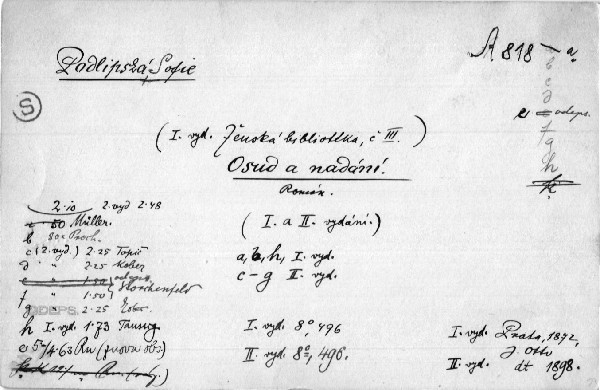 Podlipská, Sofie
A 818 – a
b
c
d
e odeps.
f
g
h
k
S
(I. vyd. Ženská bibliotéka, č III.)
Osud a nadání.
Román.
(I. a II. vydání.)
2·10 2. vyd 2·48
a · 50 Müller.
b 80x Proch.
c (2. vyd.) 2·25 Topič
d " 2·25 Kober
e " 1·50 odeps.
f " 1·50 Storchenfeld
g " 2·25
ODEPS.
h I. vyd. 1·73 Taussig
a, b, h, I. vyd.
c–g II. vyd.
I. vyd. 8°, 496
II. vyd. 8°, 496.
I. vyd. Praha, 1872,
J. Otto
II. vyd. dt 1898.